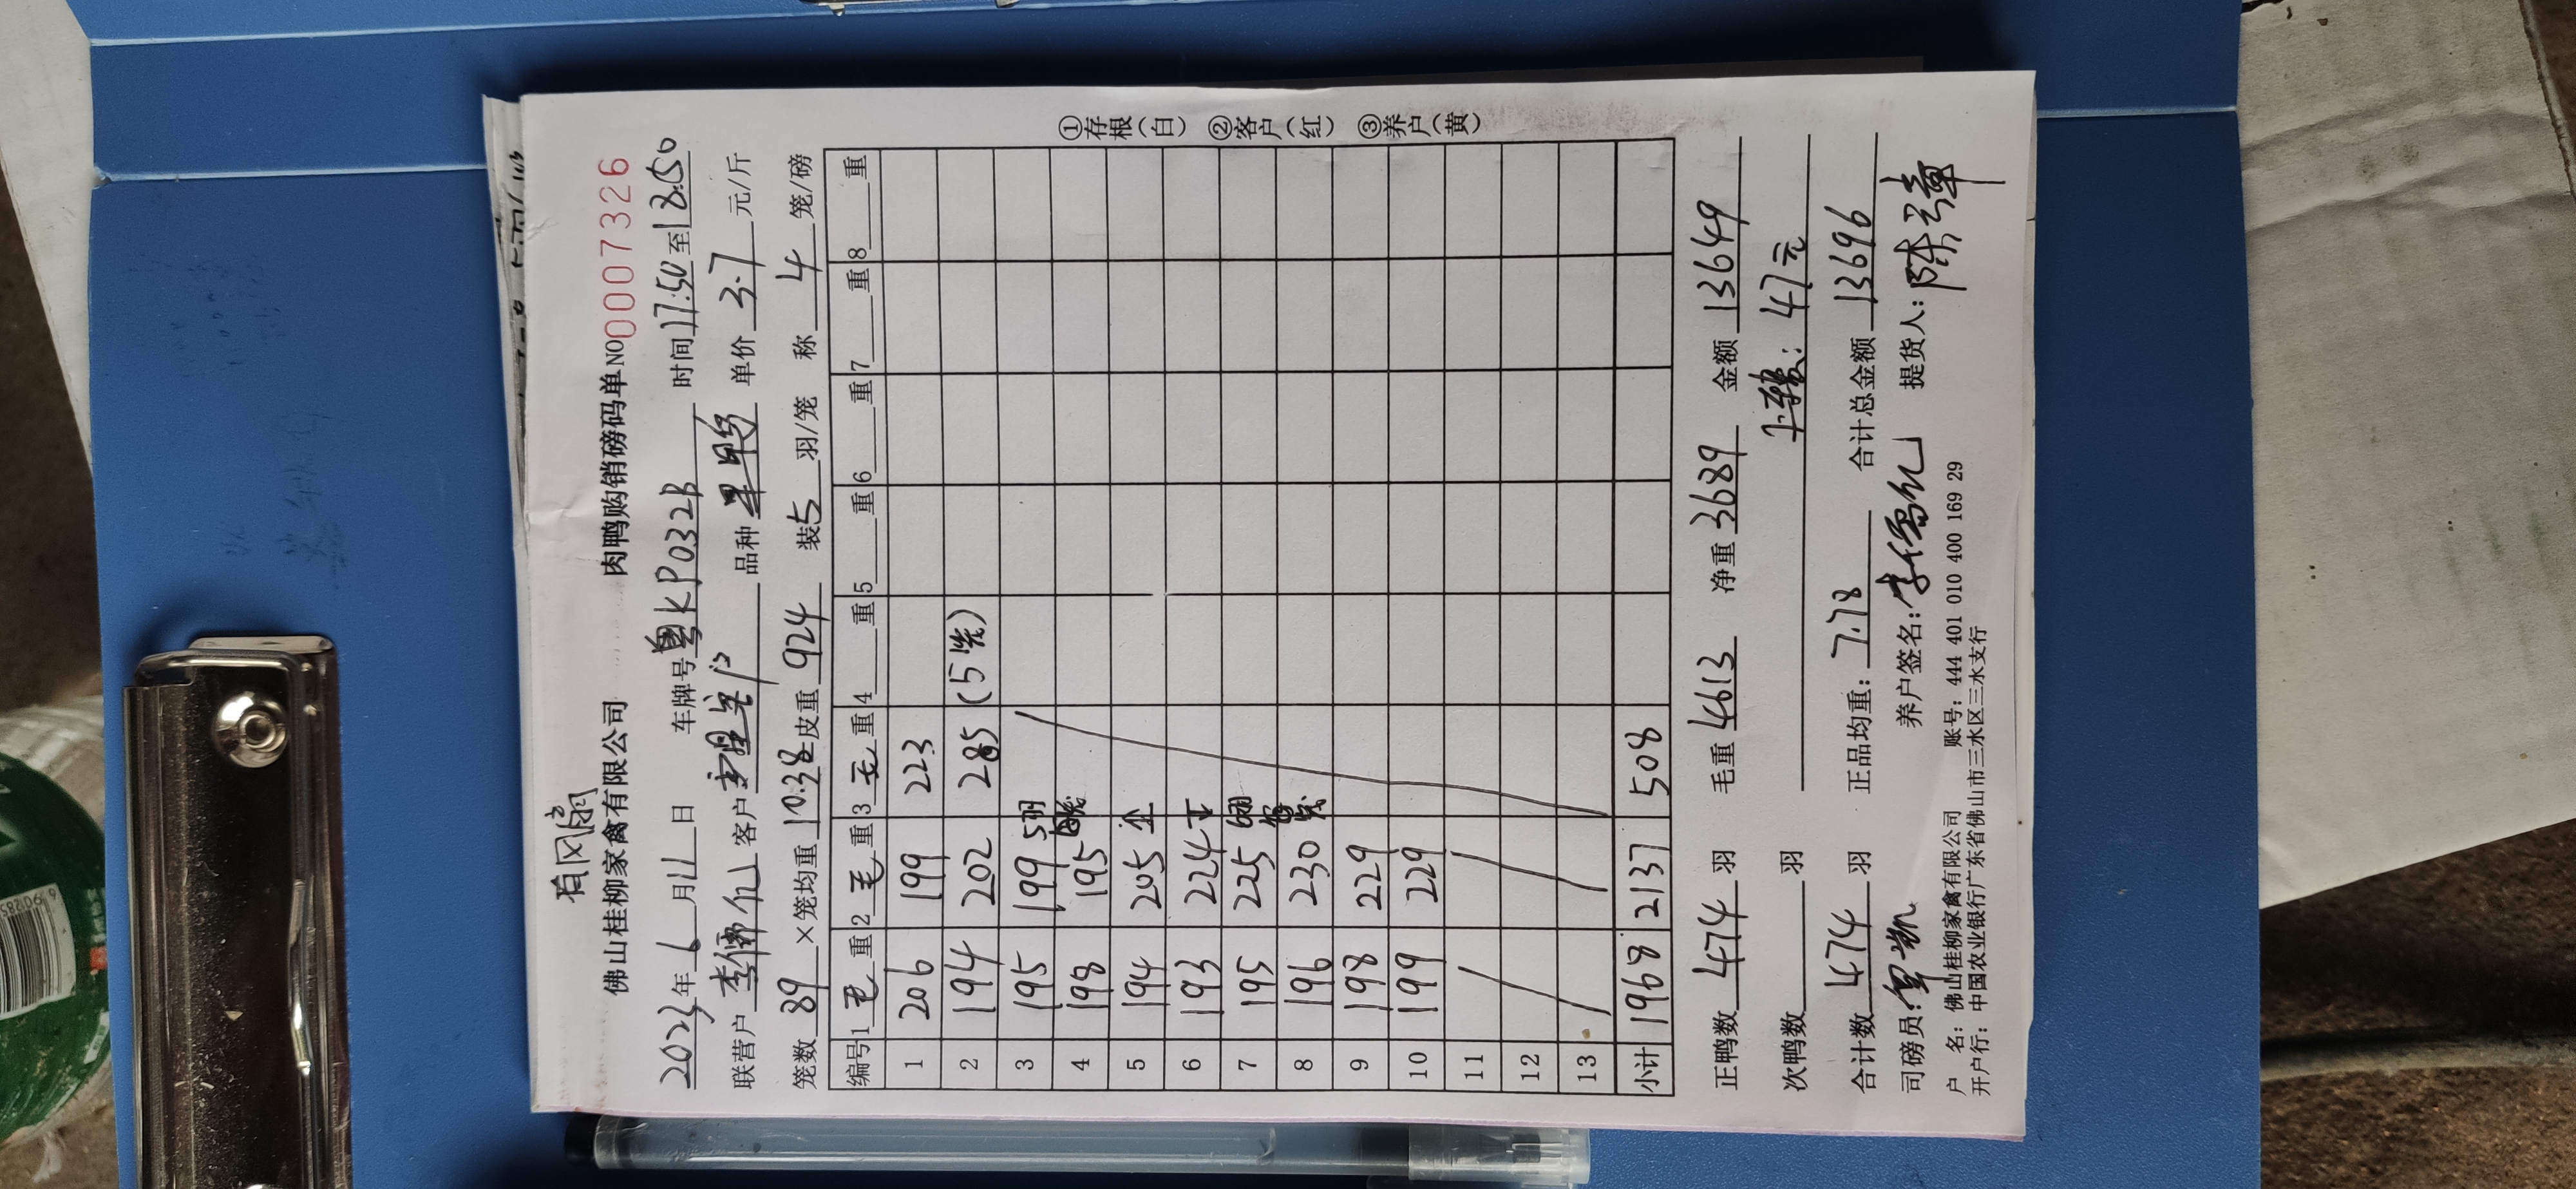 有风扇
佛山桂柳家禽有限公司 肉鸭购销磅码单 NO 0007326
2023年6月11日 车牌号粤KP032B 时间17:50至18:50
联营户 客户 品种 单价3.7元/斤
笼数89×笼均重10.38 皮重924 装5羽/笼 称4笼/磅
编号 1毛重 2毛重 3毛重 4重 5重 6重 7重 8重
1 206 199 223
2 194 202 285 (5笼)
3 195 199 5羽
4 198 195
5 194 205 个
6 193 224 下
7 195 225 6羽
8 196 230
9 198 229
10 199 229
11
12
13
小计 1968 2137 508
正鸭数474羽 毛重4613 净重3689 金额13649
次鸭数 羽 47元
合计数474羽 正品均重:7.78 合计总金额13696
司磅员: 养户签名: 提货人:
户 名: 佛山桂柳家禽有限公司 账号: 444 401 010 400 169 29
开户行: 中国农业银行广东省佛山市三水区三水支行
①存根(白) ②客户(红) ③养户(黄)